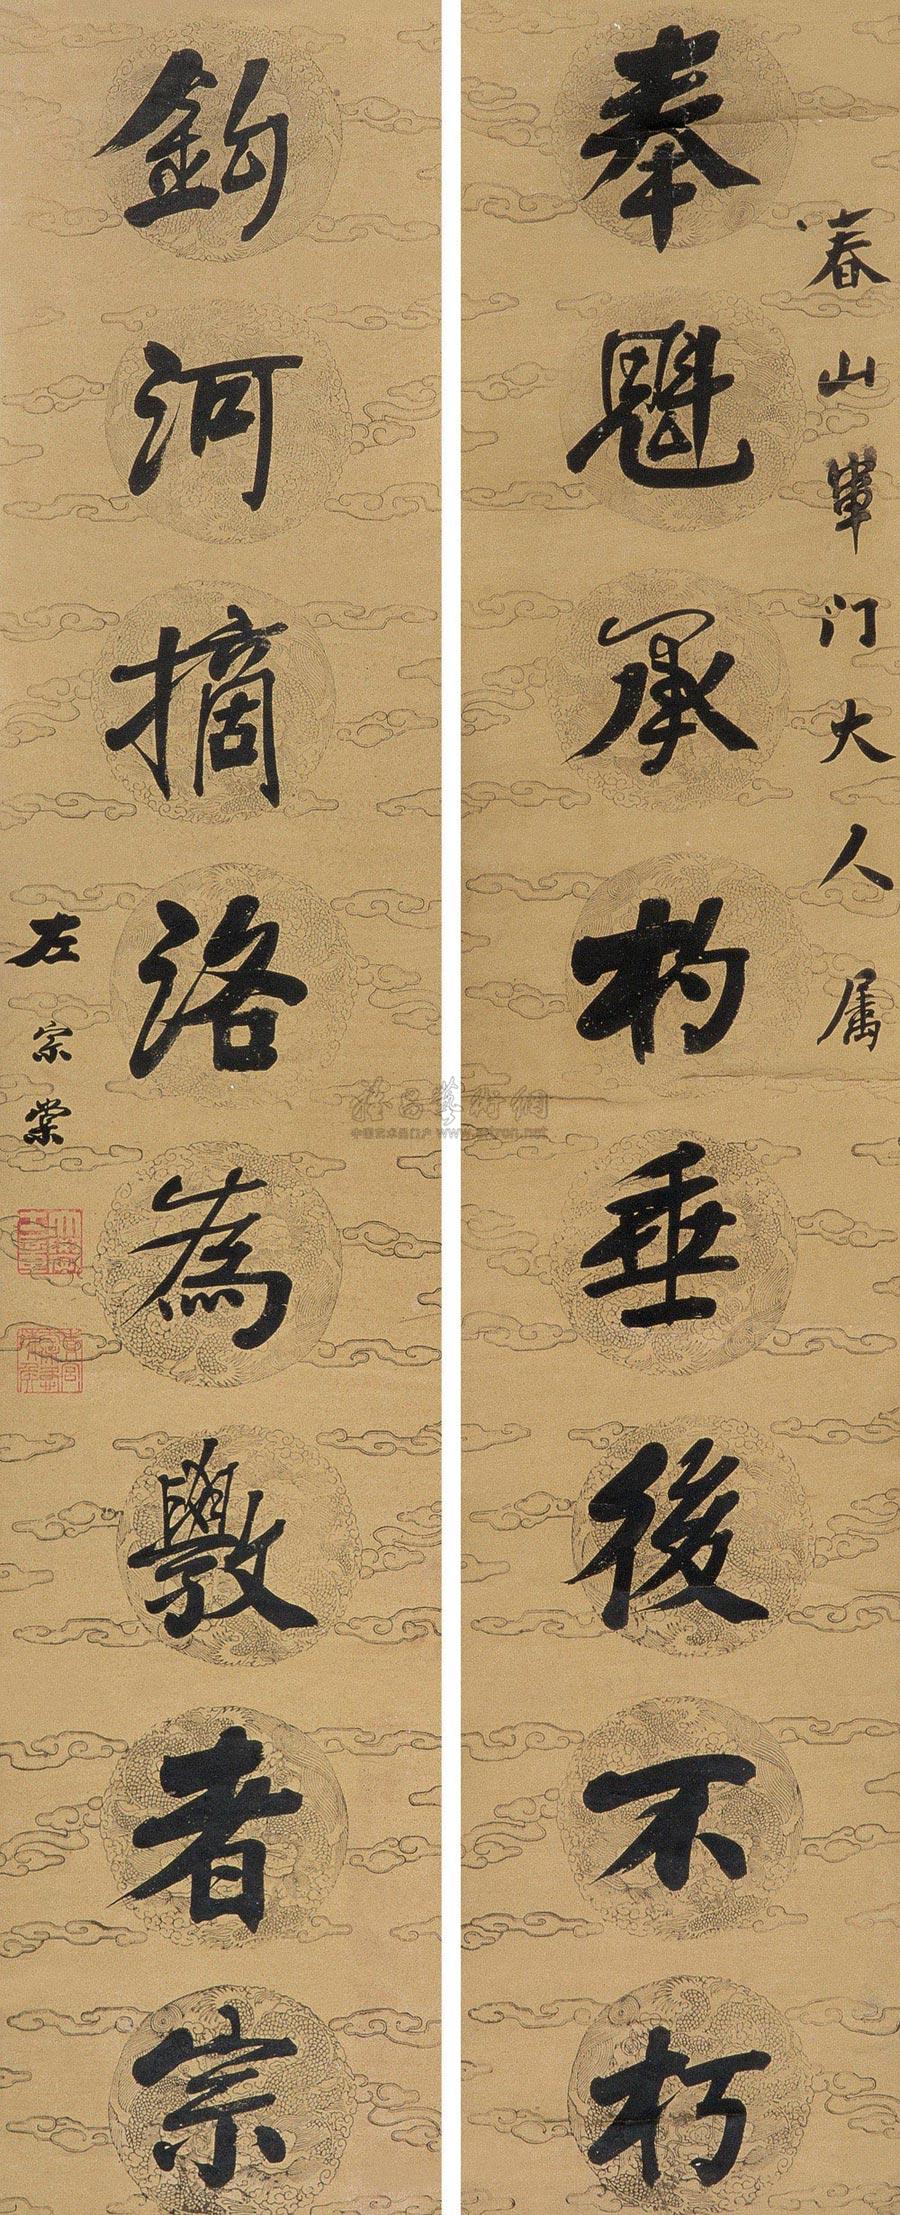 春山軍门大人属
奉魁承杓垂後不朽
鈎河摘洛為斆者宗
左宗棠
雅昌藝術網
中国艺术品门户 www.artron.net